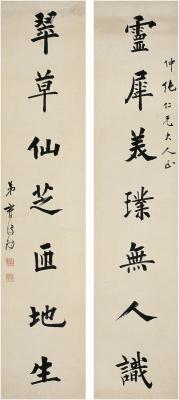 靈犀美璞無人識
仲絁仁兄大人正
翠草仙芝匝地生
弟曾紀